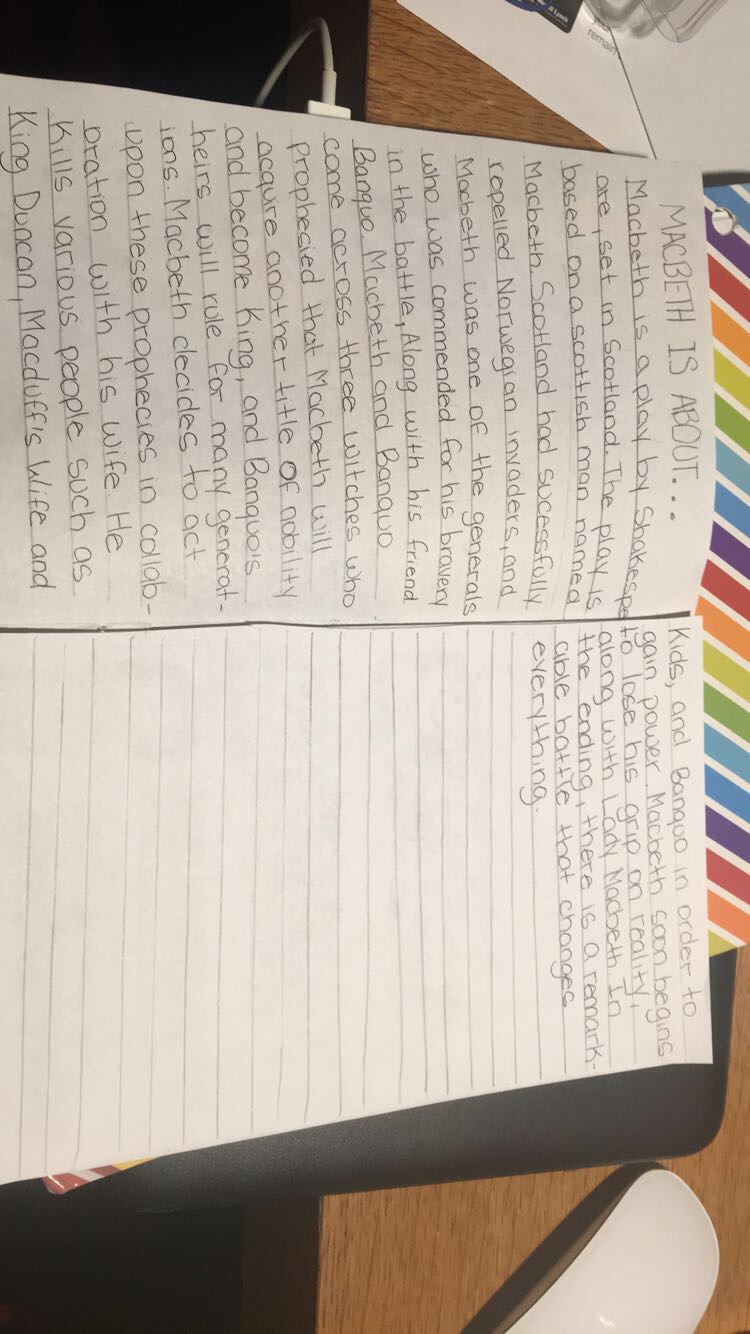 MACBETH IS ABOUT...
Macbeth is a play by Shakespe
are, set in Scotland. The play is
based on a scottish man named
Macbeth. Scotland had sucessfully
repelled Norwegian invaders, and
Macbeth was one of the generals
who was commended for his bravery
in the battle, Along with his friend
Banquo. Macbeth and Banquo
come across three witches who
prophesied that Macbeth will
acquire another title of nobility
and become King, and Banquo's
heirs will rule for many generat-
ions. Macbeth decides to act
upon these prophecies in collab-
oration with his wife. He
kills various people such as
King Duncan, Macduff's Wife and
Kids, and Banquo in order to
gain power. Macbeth soon begins
to lose his grip on reality,
along with Lady Macbeth. In
the ending, there is a remark-
able battle that changes
everything.
remain